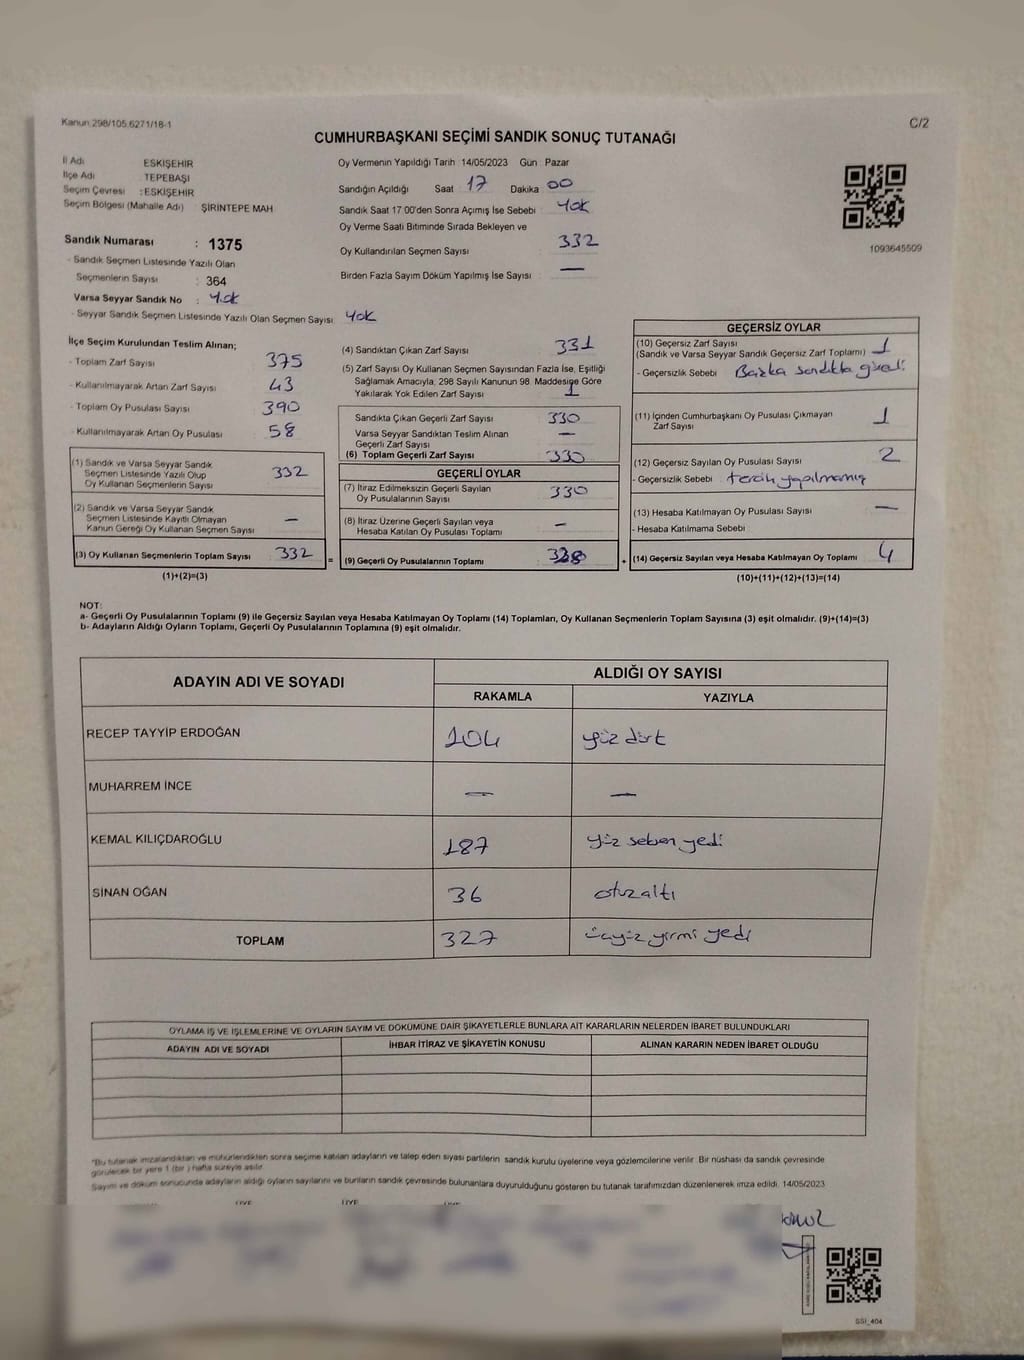 Kanun 298/105,6271/18-1
C/2
CUMHURBAŞKANI SEÇİMİ SANDIK SONUÇ TUTANAĞI
İl Adı ESKİŞEHİR
İlçe Adı TEPEBAŞI
Seçim Çevresi : ESKİŞEHİR
Seçim Bölgesi (Mahalle Adı) ŞİRİNTEPE MAH
Sandık Numarası : 1375
- Sandık Seçmen Listesinde Yazılı Olan
Seçmenlerin Sayısı : 364
Varsa Seyyar Sandık No : Yok
- Seyyar Sandık Seçmen Listesinde Yazılı Olan Seçmen Sayısı : Yok
Oy Vermenin Yapıldığı Tarih : 14/05/2023 Gün : Pazar
Sandığın Açıldığı Saat 17 Dakika 00
Sandık Saat 17:00'den Sonra Açımış İse Sebebi : Yok
Oy Verme Saati Bitiminde Sırada Bekleyen ve
Oy Kullandırılan Seçmen Sayısı : 332
Birden Fazla Sayım Döküm Yapılmış İse Sayısı : —
1093645509
İlçe Seçim Kurulundan Teslim Alınan;
- Toplam Zarf Sayısı 375
- Kullanılmayarak Artan Zarf Sayısı 43
- Toplam Oy Pusulası Sayısı 390
- Kullanılmayarak Artan Oy Pusulası 58
(1) Sandık ve Varsa Seyyar Sandık
Seçmen Listesinde Yazılı Olup
Oy Kullanan Seçmenlerin Sayısı 332
(2) Sandık ve Varsa Seyyar Sandık
Seçmen Listesinde Kayıtlı Olmayan
Kanun Gereği Oy Kullanan Seçmen Sayısı —
(3) Oy Kullanan Seçmenlerin Toplam Sayısı 332 =
(1)+(2)=(3)
(4) Sandıktan Çıkan Zarf Sayısı 331
(5) Zarf Sayısı Oy Kullanan Seçmen Sayısından Fazla İse, Eşitliği
Sağlamak Amacıyla, 298 Sayılı Kanunun 98. Maddesine Göre
Yakılarak Yok Edilen Zarf Sayısı 1
Sandıkta Çıkan Geçerli Zarf Sayısı 330
Varsa Seyyar Sandıktan Teslim Alınan
Geçerli Zarf Sayısı —
(6) Toplam Geçerli Zarf Sayısı 330
GEÇERLİ OYLAR
(7) İtiraz Edilmeksizin Geçerli Sayılan
Oy Pusulalarının Sayısı 330
(8) İtiraz Üzerine Geçerli Sayılan veya
Hesaba Katılan Oy Pusulası Toplamı —
(9) Geçerli Oy Pusulalarının Toplamı 328 +
GEÇERSİZ OYLAR
(10) Geçersiz Zarf Sayısı
(Sandık ve Varsa Seyyar Sandık Geçersiz Zarf Toplamı) 1
- Geçersizlik Sebebi : Başka sandıkta
(11) İçinden Cumhurbaşkanı Oy Pusulası Çıkmayan
Zarf Sayısı 1
(12) Geçersiz Sayılan Oy Pusulası Sayısı 2
- Geçersizlik Sebebi : tercih yapılmamış
(13) Hesaba Katılmayan Oy Pusulası Sayısı —
- Hesaba Katılmama Sebebi :
(14) Geçersiz Sayılan veya Hesaba Katılmayan Oy Toplamı 4
(10)+(11)+(12)+(13)=(14)
NOT:
a- Geçerli Oy Pusulalarının Toplamı (9) ile Geçersiz Sayılan veya Hesaba Katılmayan Oy Toplamı (14) Toplamları, Oy Kullanan Seçmenlerin Toplam Sayısına (3) eşit olmalıdır. (9)+(14)=(3)
b- Adayların Aldığı Oyların Toplamı, Geçerli Oy Pusulalarının Toplamına (9) eşit olmalıdır.
ADAYIN ADI VE SOYADI ALDIĞI OY SAYISI
RAKAMLA YAZIYLA
RECEP TAYYİP ERDOĞAN 104 yüz dört
MUHARREM İNCE — —
KEMAL KILIÇDAROĞLU 187 yüz seksen yedi
SİNAN OĞAN 36 otuzaltı
TOPLAM 327 üçyüz yirmi yedi
OYLAMA İŞ VE İŞLEMLERİNE VE OYLARIN SAYIM VE DÖKÜMÜNE DAİR ŞİKAYETLERLE BUNLARA AİT KARARLARIN NELERDEN İBARET BULUNDUKLARI
ADAYIN ADI VE SOYADI İHBAR İTİRAZ VE ŞİKAYETİN KONUSU ALINAN KARARIN NEDEN İBARET OLDUĞU
*Bu tutanak imzalandıktan ve mühürlendikten sonra seçime katılan adayların ve talep eden siyasi partilerin sandık kurulu üyelerine veya gözlemcilerine verilir. Bir nüshası da sandık çevresinde
görülecek bir yere 1 (bir) hafta süreyle asılır.
Sayım ve döküm sonucunda adayların aldığı oyların sayılarını ve bunların sandık çevresinde bulunanlara duyurulduğunu gösteren bu tutanak tarafımızdan düzenlenerek imza edildi. 14/05/2023
SSI_404